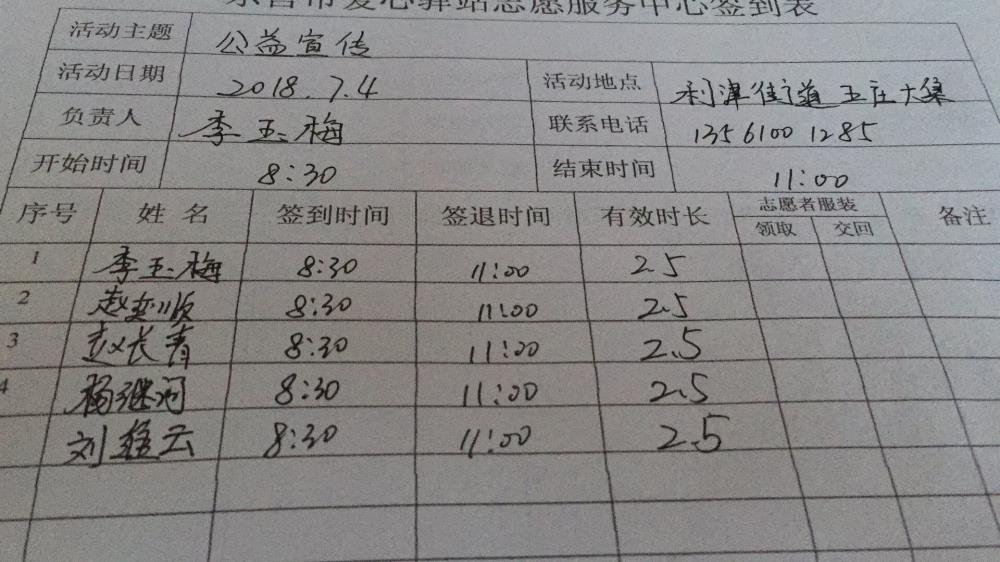 东营市爱心驿站志愿服务中心签到表
活动主题 公益宣传
活动日期 2018.7.4 活动地点 利津街道王庄大集
负责人 李玉梅 联系电话 13561001285
开始时间 8:30 结束时间 11:00
序号 姓名 签到时间 签退时间 有效时长 志愿者服装 备注
领取 交回
1 李玉梅 8:30 11:00 2.5
2 赵 顺 8:30 11:00 2.5
3 赵长青 8:30 11:00 2.5
4 杨继河 8:30 11:00 2.5
刘 云 8:30 11:00 2.5